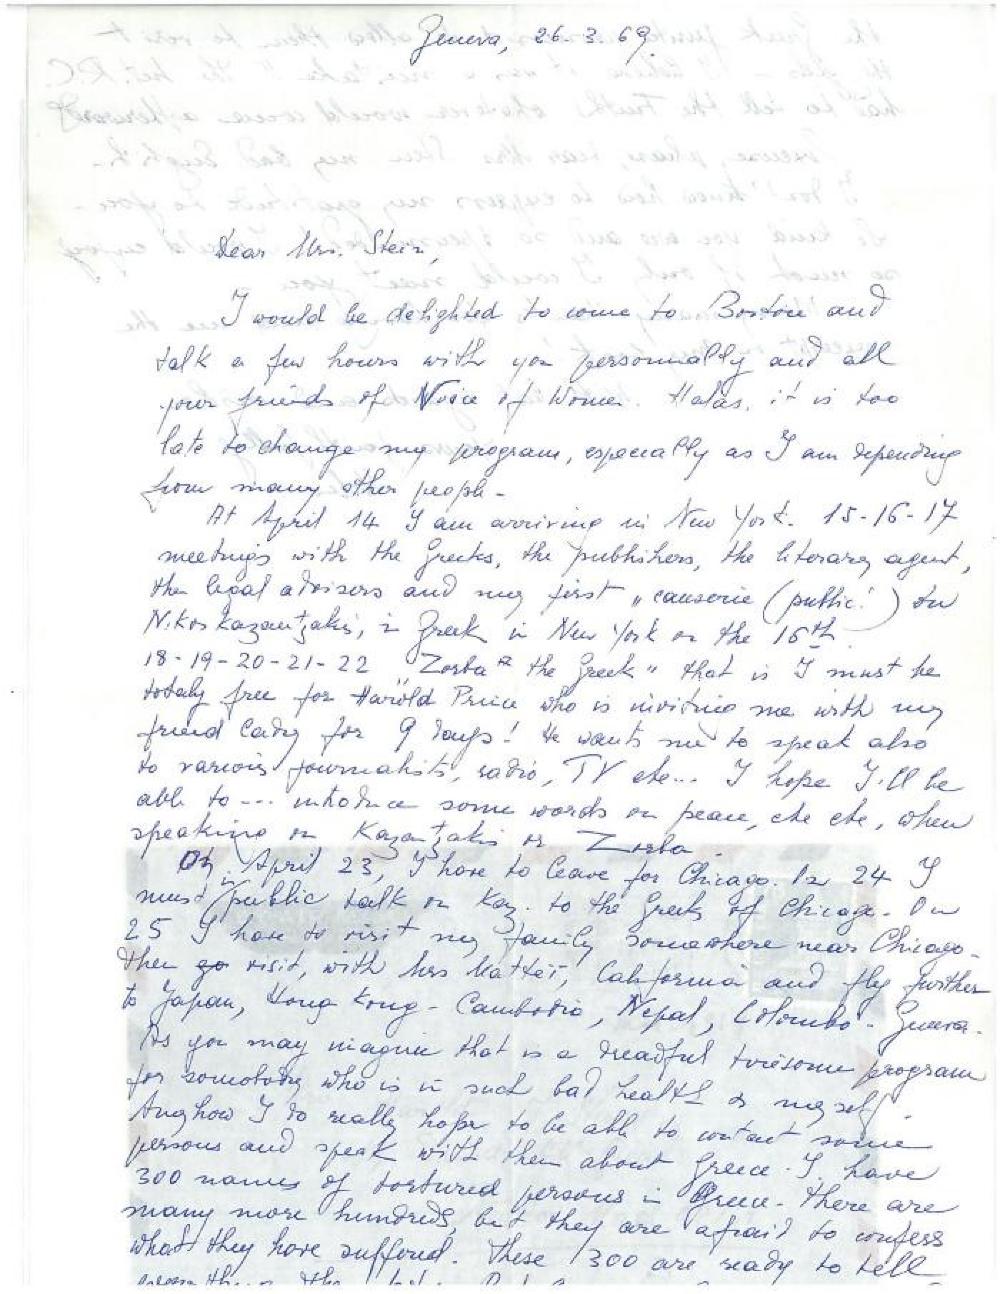 Geneva, 26.3.69.
Dear Mrs. Stein,
I would be delighted to come to Boston and
talk a few hours with you personnally and all
your friends of Voice of Women. Halas, it is too
late to change my program, especially as I am depending
from many other people.
At April 14 I am arriving in New York. 15-16-17
meetings with the Greeks, the publishers, the literary agent,
the legal advisers and my first "causerie (public!) on
Nikos Kazantzakis, in Greek in New York on the 16th
18-19-20-21-22 "Zorba the Greek" that is I must be
totaly free for Harold Prince who is inviting me with my
friend Cady for 9 days! He wants me to speak also
to various journalists, radio, TV etc... I hope I'll be
able to... introduce some words on peace, etc etc, when
speaking on Kazantzakis or Zorba.
On April 23, I have to leave for Chicago. In 24 I
must in public talk on Kaz. to the Greeks of Chicago. On
25 I have to visit my family somewhere near Chicago.
Then visit, with Mrs California and fly further
to Japan, Hong Kong - Cambodia, Nepal, Colombo - Geneva.
As you may imagine that is a dreadful tiresome program
for somebody who is in such bad health as myself.
Anyhow I do really hope to be able to contact some
persons and speak with them about Greece. I have
300 names of tortured persons in Greece. There are
many more hundreds, but they are afraid to confess
what they have suffered. These 300 are ready to tell